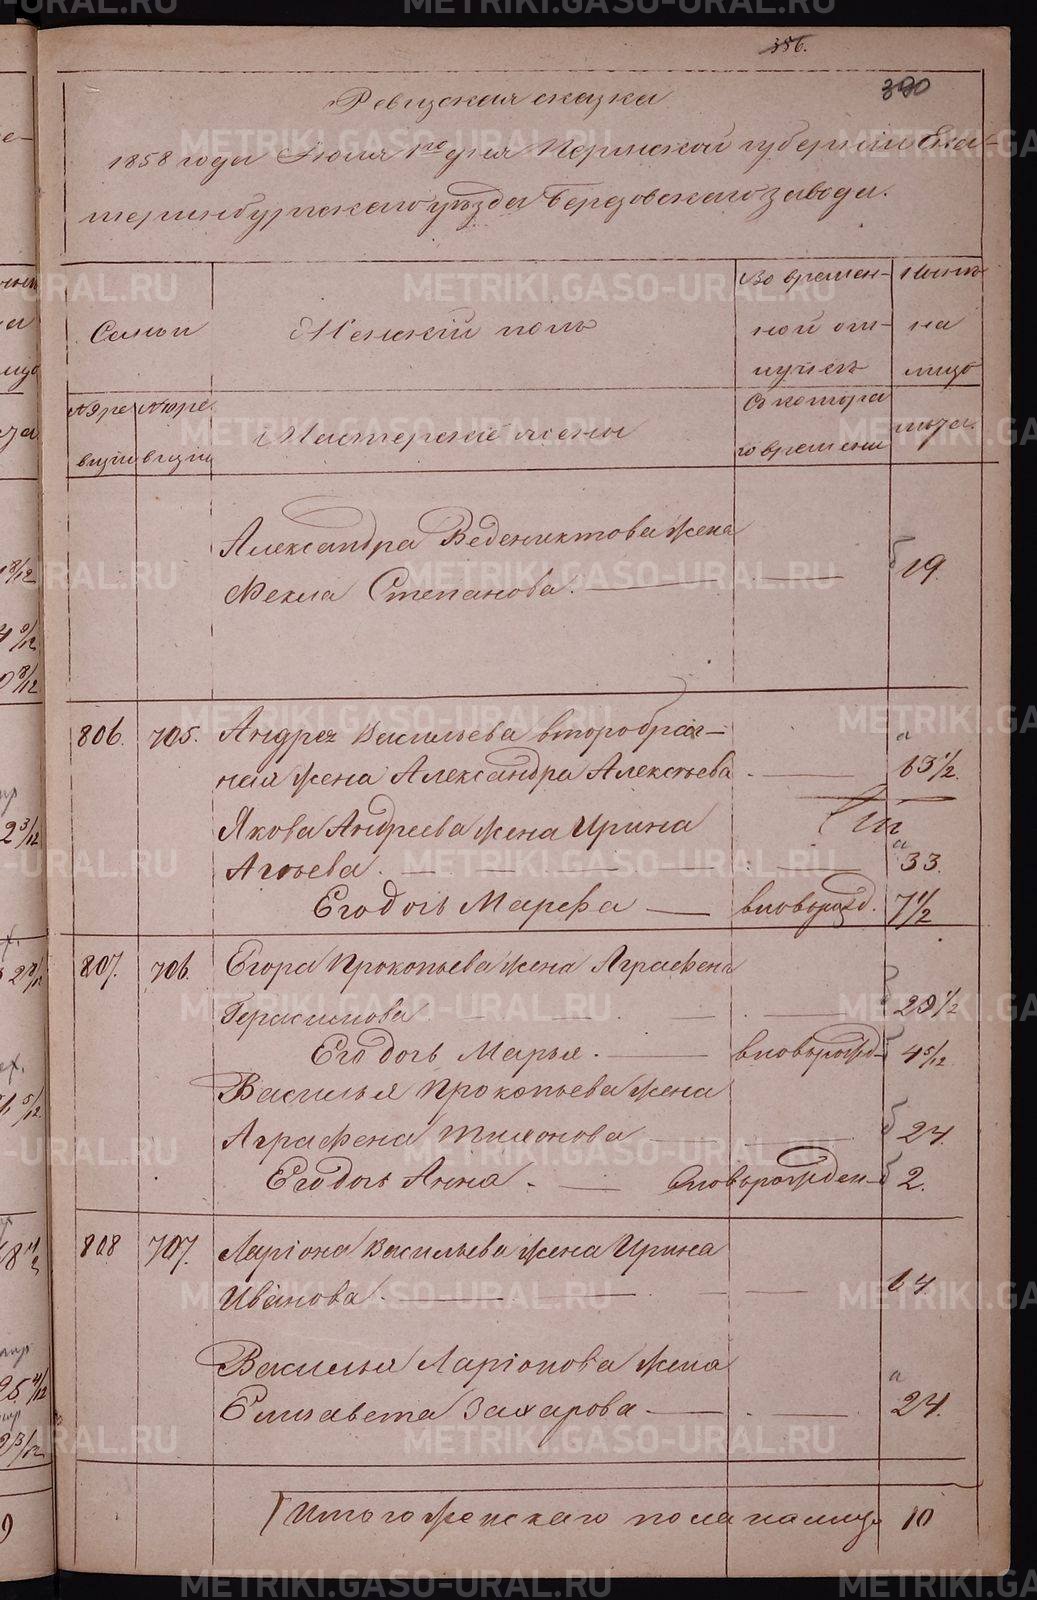 356.
390
Ревизская сказка
1858 года Июля 1го дня Пермской губернии Ека-
теринбургского уѣзда Березовского завода.
Семьи
Женскій полъ
Во времен-
ной от-
лучкѣ
Нынѣ
на
лицо
№ 9 ре
визіи
№ 10 ре
визіи
Мастерскіе жены
Съ котора
го времени
лѣта.
Александра Веденихтова жена
Фекла Степанова.
19
806. 705. Андрея Васильева второбрач-
ная жена Александра Алексѣева 63 11/12.
Якова Андреева жена Ирина
Агѣева. 33.
Его дочь Марфа вновьрожд. 7 11/12
807. 706. Егора Прокопьева жена Аграфена
Герасимова 29 11/12
Его дочь Марья. вновьрожд 4 5/12
Василья Прокопьева жена
Аграфена Тихонова 24.
Его дочь Анна. вновьрожден 2.
808 707. Ларіона Васильева жена Ирина
Иванова. 64.
Василья Ларіонова жена
Елизавета Захарова 24.
Итого женскаго пола налицо 10
METRIKI.GASO-URAL.RU